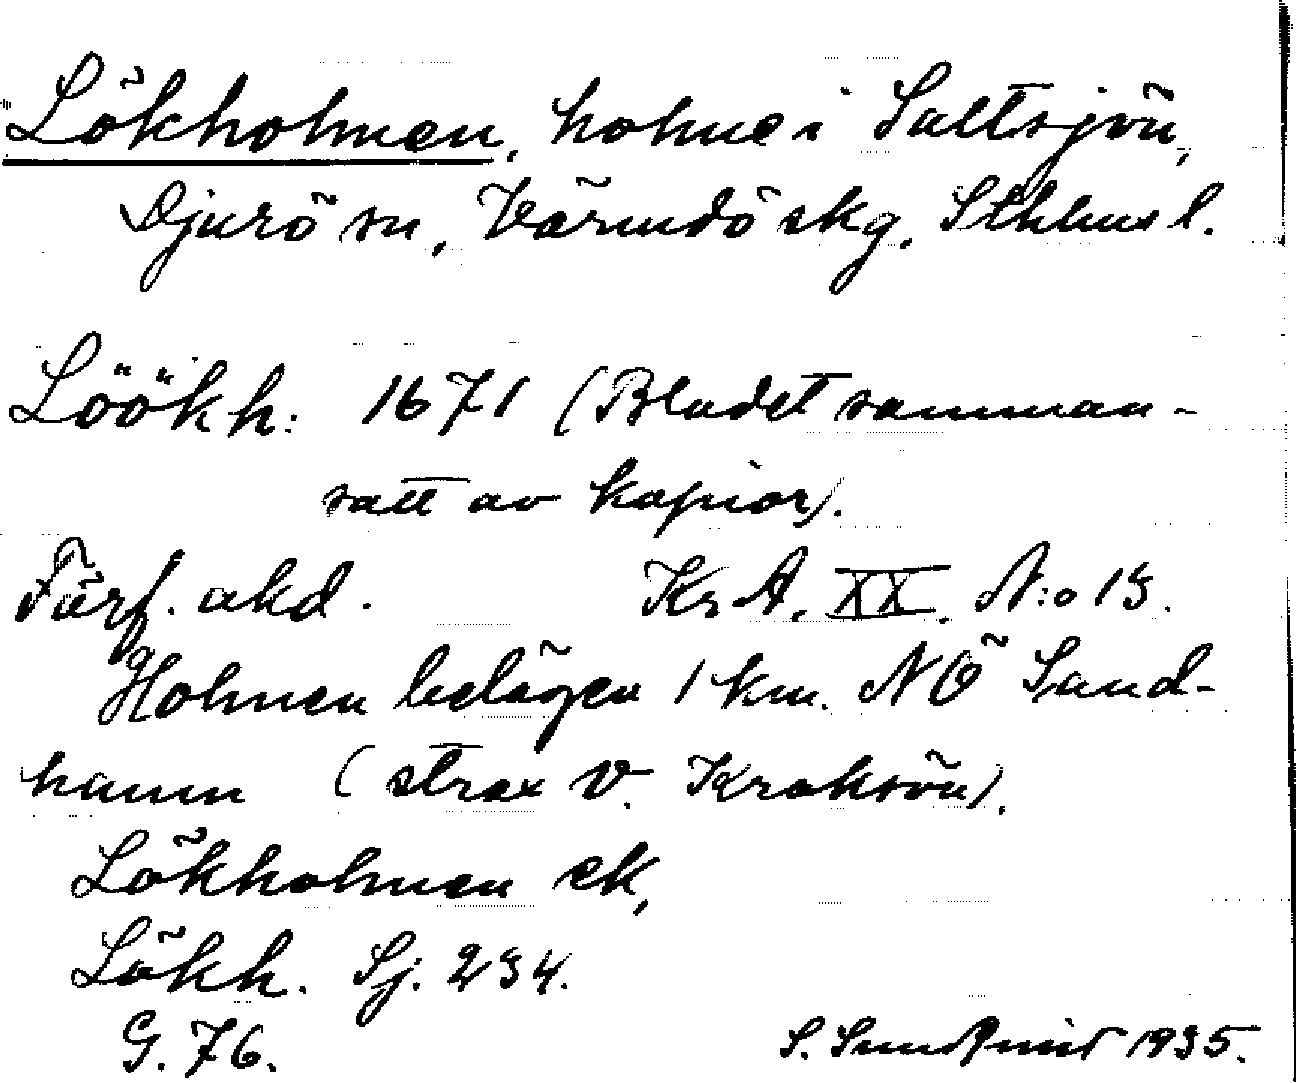 Lökholmen, holme i Saltsjön,
Djurö sn, Värmdö skg, Sthlms l.
Löökh: 1671 (Bladet samman-
satt av kopior).
Förf. akd. Kr.A. XX. N:o 13.
Holmen belägen 1 km. NÖ Sand-
hamn (strax V. Kroksön).
Lökholmen ek,
Lökh. Sj. 234.
G. 76. S. Sundqvist 1935.